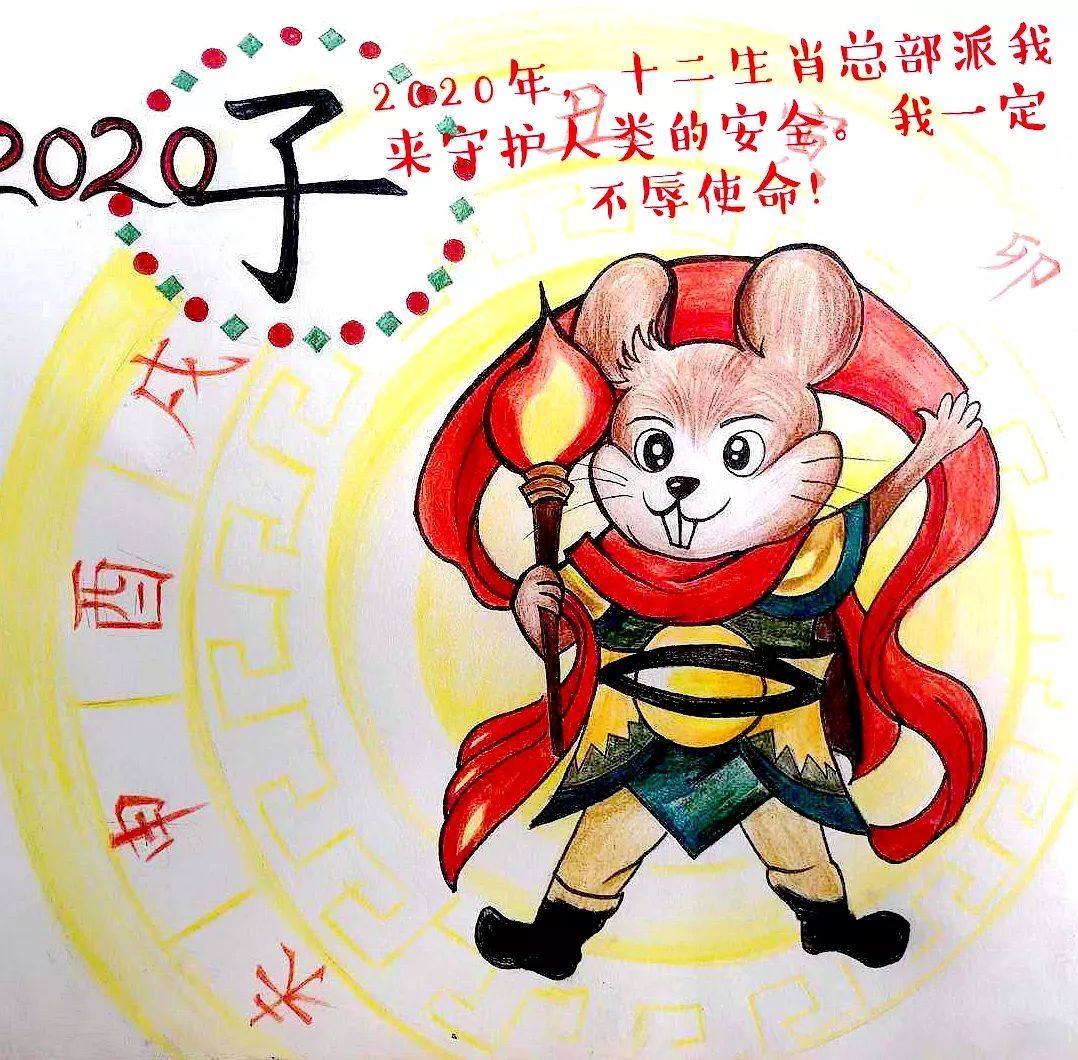 2020年，十二生肖总部派我
来守护人类的安全。我一定
不辱使命！
2020子
丑
寅
卯
戌
酉
申
未